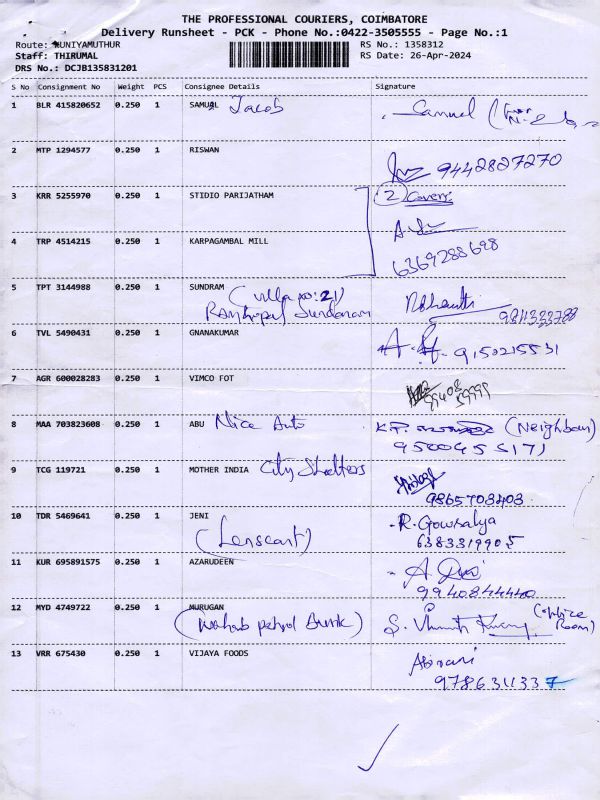 THE PROFESSIONAL COURIERS, COIMBATORE
Delivery Runsheet - PCK - Phone No.:0422-3505555 - Page No.:1
Route: KUNIYAMUTHUR
Staff: THIRUMAL
DRS No.: DCJB135831201
RS No.: 1358312
RS Date: 26-Apr-2024
S No Consignment No Weight PCS Consignee Details Signature
1 BLR 415820652 0.250 1 SAMUAL Jacob Samuel
2 MTP 1294577 0.250 1 RISWAN 9442827270
3 KRR 5255970 0.250 1 STIDIO PARIJATHAM 2 Covers
4 TRP 4514215 0.250 1 KARPAGAMBAL MILL
6369288698
5 TPT 3144988 0.250 1 SUNDRAM (villa no: 21)
6 TVL 5490431 0.250 1 GNANAKUMAR 9150215531
7 AGR 600028283 0.250 1 VIMCO FOT
8 MAA 703823608 0.250 1 ABU Nice Auto (Neighbour)
9 TCG 119721 0.250 1 MOTHER INDIA City Shelters
9865703403
10 TDR 5469641 0.250 1 JENI R. Gowsalya
(Lenscart) 6383319905
11 KUR 695891575 0.250 1 AZARUDEEN
9940844440
12 MYD 4749722 0.250 1 MURUGAN
(Wahab petrol Bunk)
13 VRR 675430 0.250 1 VIJAYA FOODS Abirami
9786311337